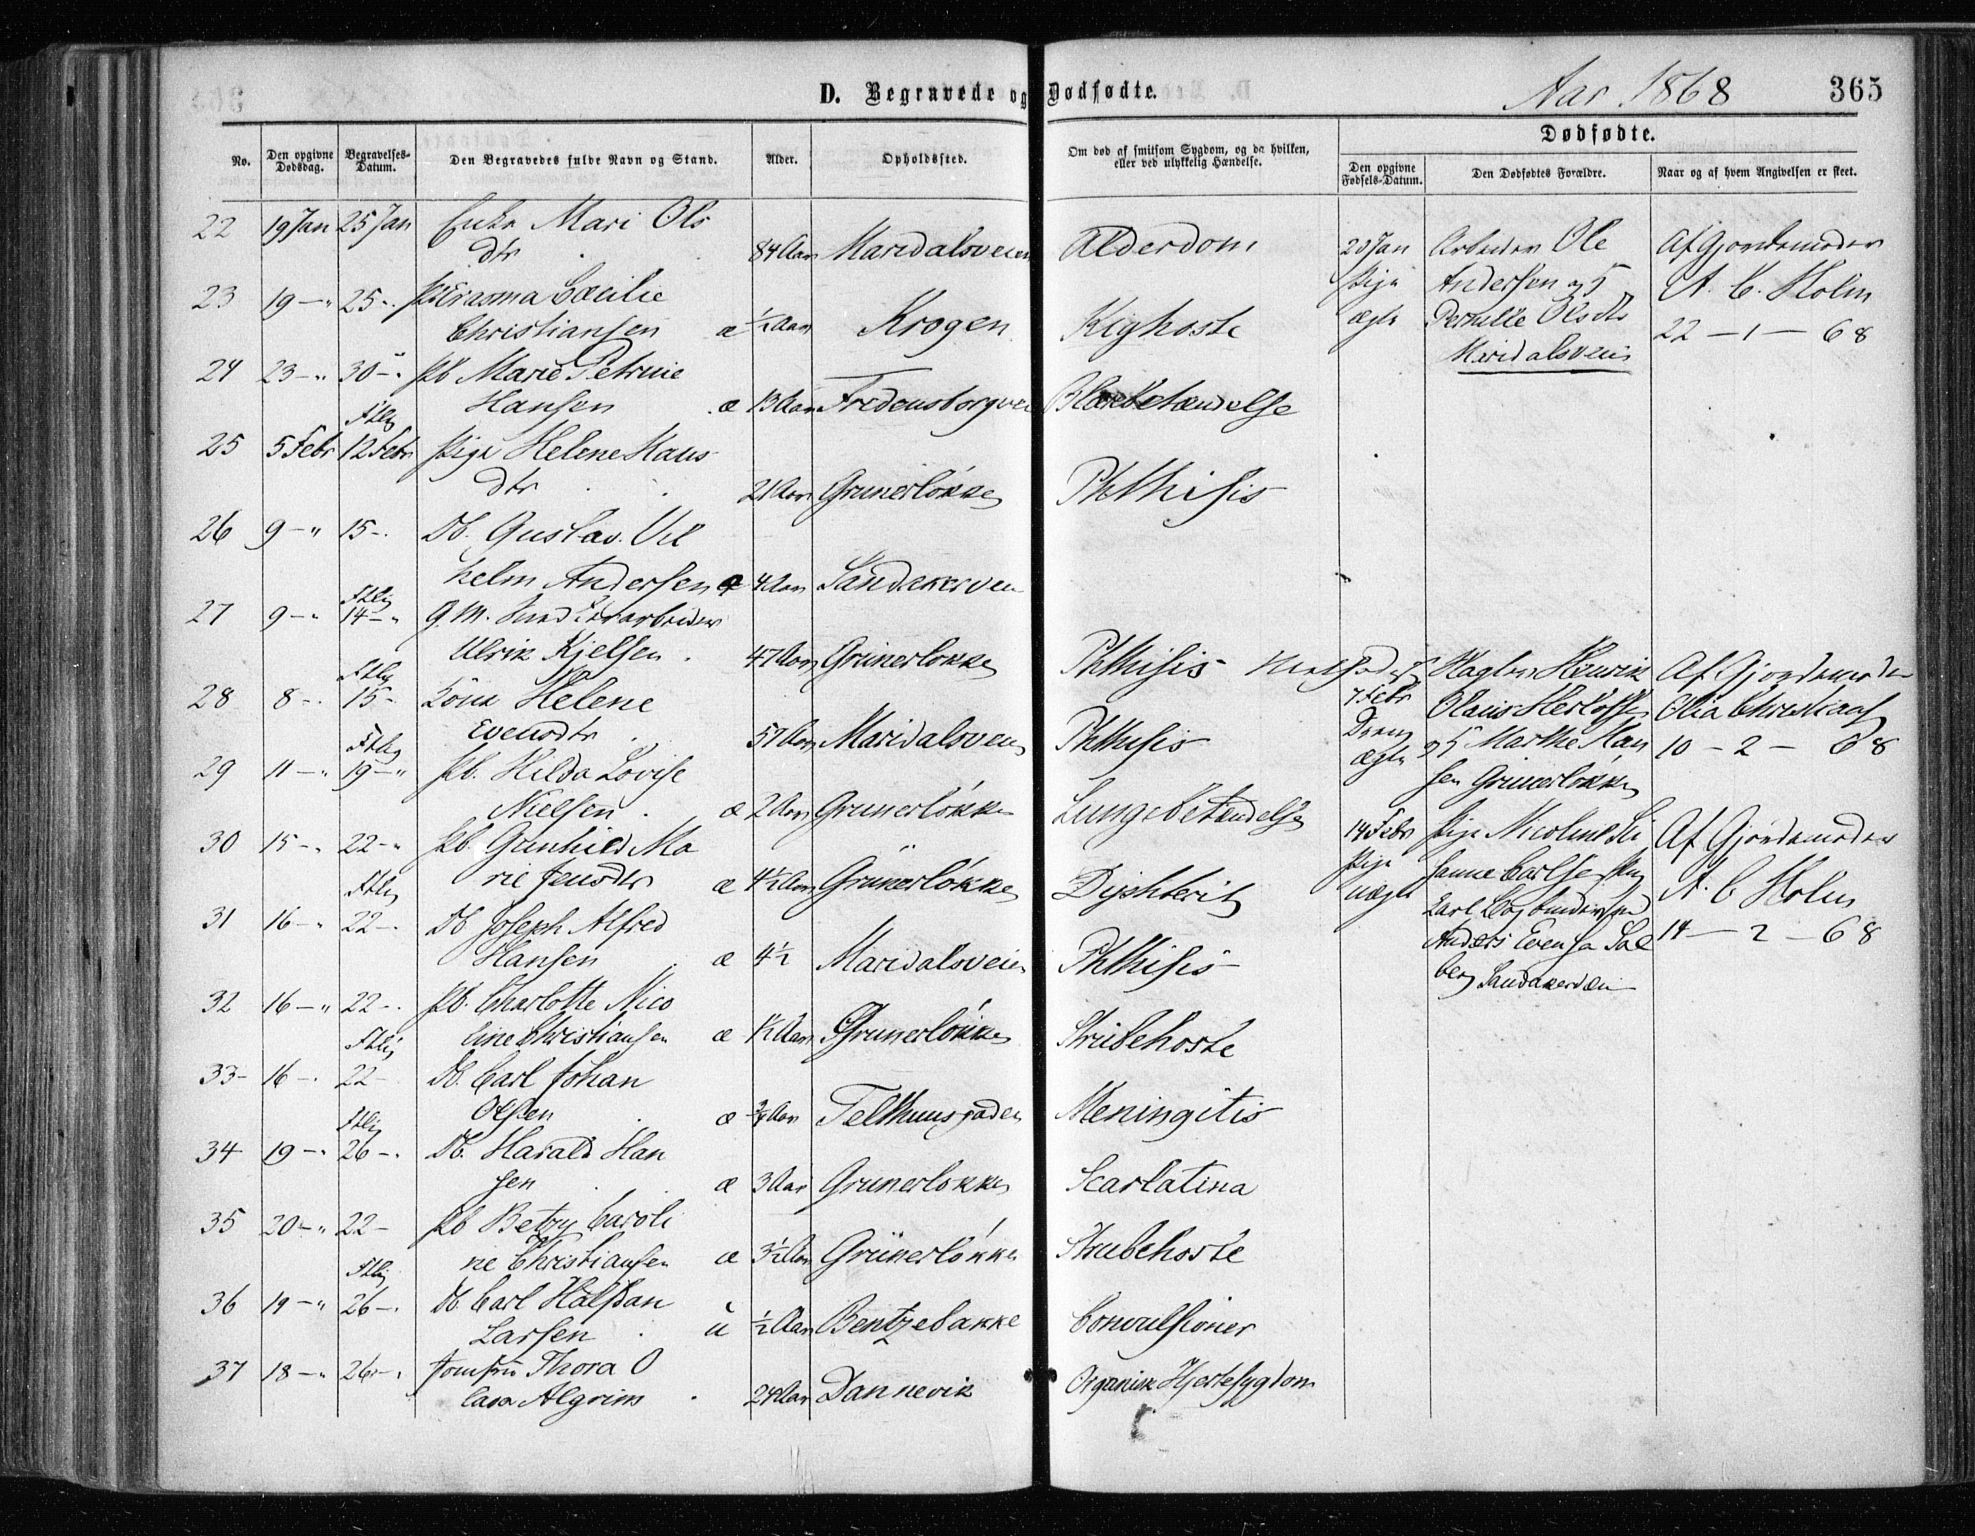 D. Begravede og Dødfødte.
Aar 1868
365
No.
Den opgivne Dødsdag.
Begravelses-Datum.
Den Begravedes fulde Navn og Stand.
Alder.
Opholdssted.
Om død af smitsom Sygdom, og da hvilken, eller ved ulykkelig Hændelse.
Dødfødte.
Den opgivne Fødsels-Datum.
Den Dødfødtes Forældre.
Naar og af hvem Angivelsen er skeet.
22 19 Jan 25 Jan Enke Mari Ols
dtr 84 Aar Maridalsveien Alderdom
23 19 - " 25 - . Pb Erasma Cæcilie
Christiansen æ ½ Aar Krogen Kighoste
24 23 - " 30 - " Pb Marie Petrine
Hansen æ 13 Aar Fredensborgvei betændelse
25 5 Febr 12 Febr Pige Helene Hans
dtr 21 Aar Grunerløkken Phthisis
26 9 - " 15 - . Db. Gustav Vil
helm Andersen æ 4 Aar Sandakerveien
27 9 - " 14 - " G. M.
Ulrik Kjelsen 47 Aar Grünerløkken Phthisis
28 8 - . 15 - Kone Helene
Evensdtr 57 Aar Maridalsveien Phthisis
29 11 - " 19 - " Pb. Hilda Lovise
Nielsen æ 2 Aar Grunerløkken Lungebetændelse
30 15 - " 22 - " Pb. Gunhild Ma
rie Jensdtr æ 4½ Aar Grünerløkken Diphterit
31 16 - " 22 - . Db Joseph Alfred
Hansen æ 4½ Maridalsveien Phthisis
32 16 - " 22 - . Pb. Charlotte Nico
line Christiansen æ 1½ Aar Grunerløkken Strubehoste
33 16 - . 22 - Db. Carl Johan
Olsen æ ¾ Aar Telthuusgaden Meningitis
34 19 - " 26 - . Db. Harald Han
sen æ 3 Aar Grunerløkken Scarlatina
35 20 - " 22 - Pb Betzy Caroli
ne Christiansen æ 3½ Aar Grünerløkken Strubehoste
36 19 - " 26 - . Db Carl Halfdan
Larsen u ½ Aar Bentzebakke Convulsioner
37 18 - " 26 - . Jomfru Thora O
lava Algrim 24 Aar Dannevik Organisk Hjertesygdom
20 Jan
Pige
ægte
Arbeider Ole
Andersen og
Pernille Olsdtr
Maridalsveien
Af Gjordemoder
A. C. Holm
22 - 1 - 68
7 Febr
Dreng
ægte
Henrik
Olaus
og Marthe Han
sen Grünerløkken
Af Gjordemoder
Olia Christians
10 - 2 - 68
14 Febr
Pige
uægte
Pige Nicoline
Anders Evensen Sol
berg Sandakerveien
Af Gjordemoder
A. C Holm
14 - 2 - 68